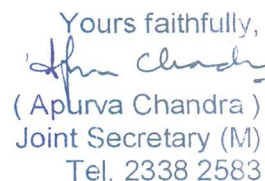 Yours faithfully,
( Apurva Chandra )
Joint Secretary (M)
Tel. 2338 2583